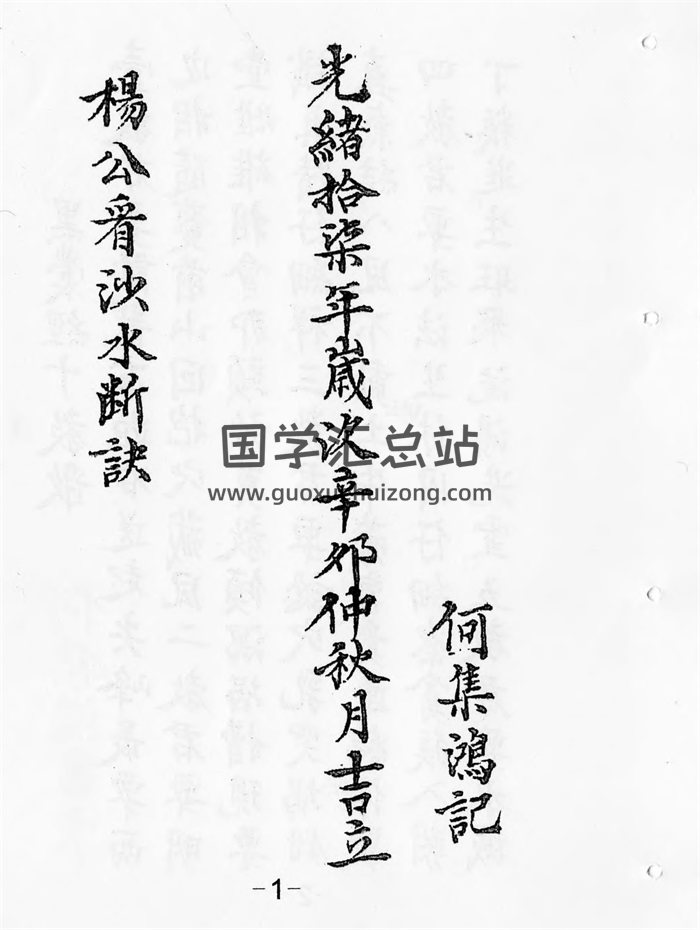 何集鴻記
光緒拾柒年歲次辛夘仲秋月吉立
楊公看沙水断訣
国学汇总站
www.guoxuehuizong.com
-1-